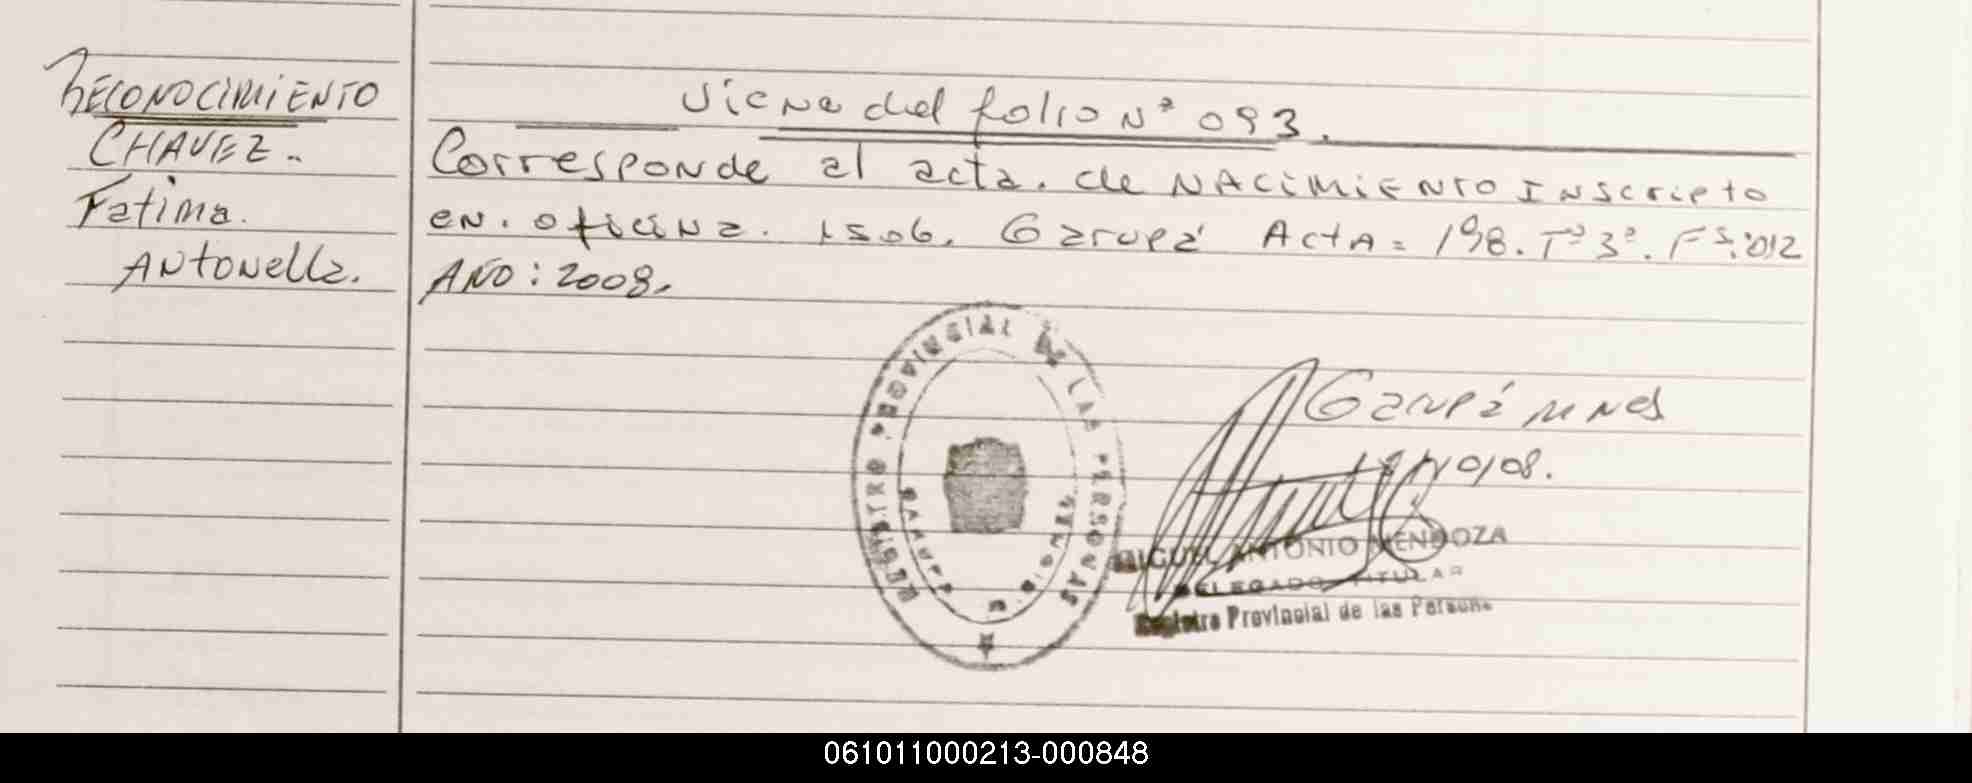 RECONOCIMIENTO
CHAVEZ.
Fatima.
ANtonella.
Viene del folio Nº 093.
Corresponde al acta. de NACiMiENTO INscripto
en. oficina. 1506. Garupá Acta = 198. Tº 3º. Fº: 012
AÑO: 2008.
REGISTRO PROVINCIAL DE LAS PERSONAS
GARUPA
Garupá MNes
10/08.
MIGUEL ANTONIO MENDOZA
DELEGADO TITULAR
Registro Provincial de las Persona
061011000213-000848